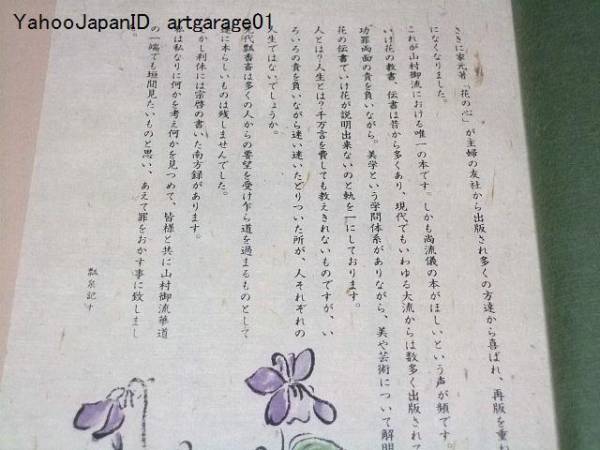 YahooJapanID artgarage01
さきに家元著「花の心」が主婦の友社から出版され多くの方達から喜ばれ、再版を重ね
になくなりました。
これが山村御流における唯一の本です。しかも尚流儀の本がほしいという声が頻です。
いけ花の教書、伝書は昔から多くあり、現代でもいわゆる大流からは数多く出版されて
功罪両面の責を負いながら。美学という学問体系がありながら、美や芸術について解明
花の伝書でいけ花が説明出来ないのと軌を一にしております。
人とは?人生とは?千万言を費しても教えきれないものですが、い
ろいろの責を負いながら迷い迷いたどりついた所が、人それぞれの
人生ではないでしょうか。
代瓢香斎は多くの人からの要望を受け乍ら道を過まるものとして
に本らしいものは残しませんでした。
かし利休には宗啓の書いた南方録があります。
は私なりに何かを考え何かを見つめて、皆様と共に山村御流華道
の一端でも垣間見たいものと思い、あえて罪をおかす事に致しまし
。
瓢泉記す